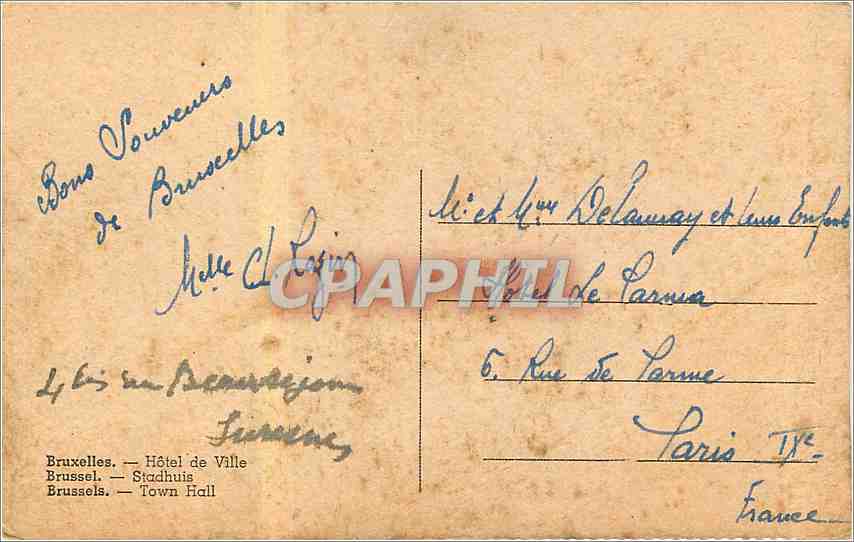 Bons Souvenirs
de Bruxelles
Melle Ch.
4 bis rue
Suresnes
Bruxelles. — Hôtel de Ville
Brussel. — Stadhuis
Brussels. — Town Hall
Mr et Mme Delaunay et leurs Enfants
Hôtel Le Parma
6. Rue de Parme
Paris IXe
France
CPAPHIL